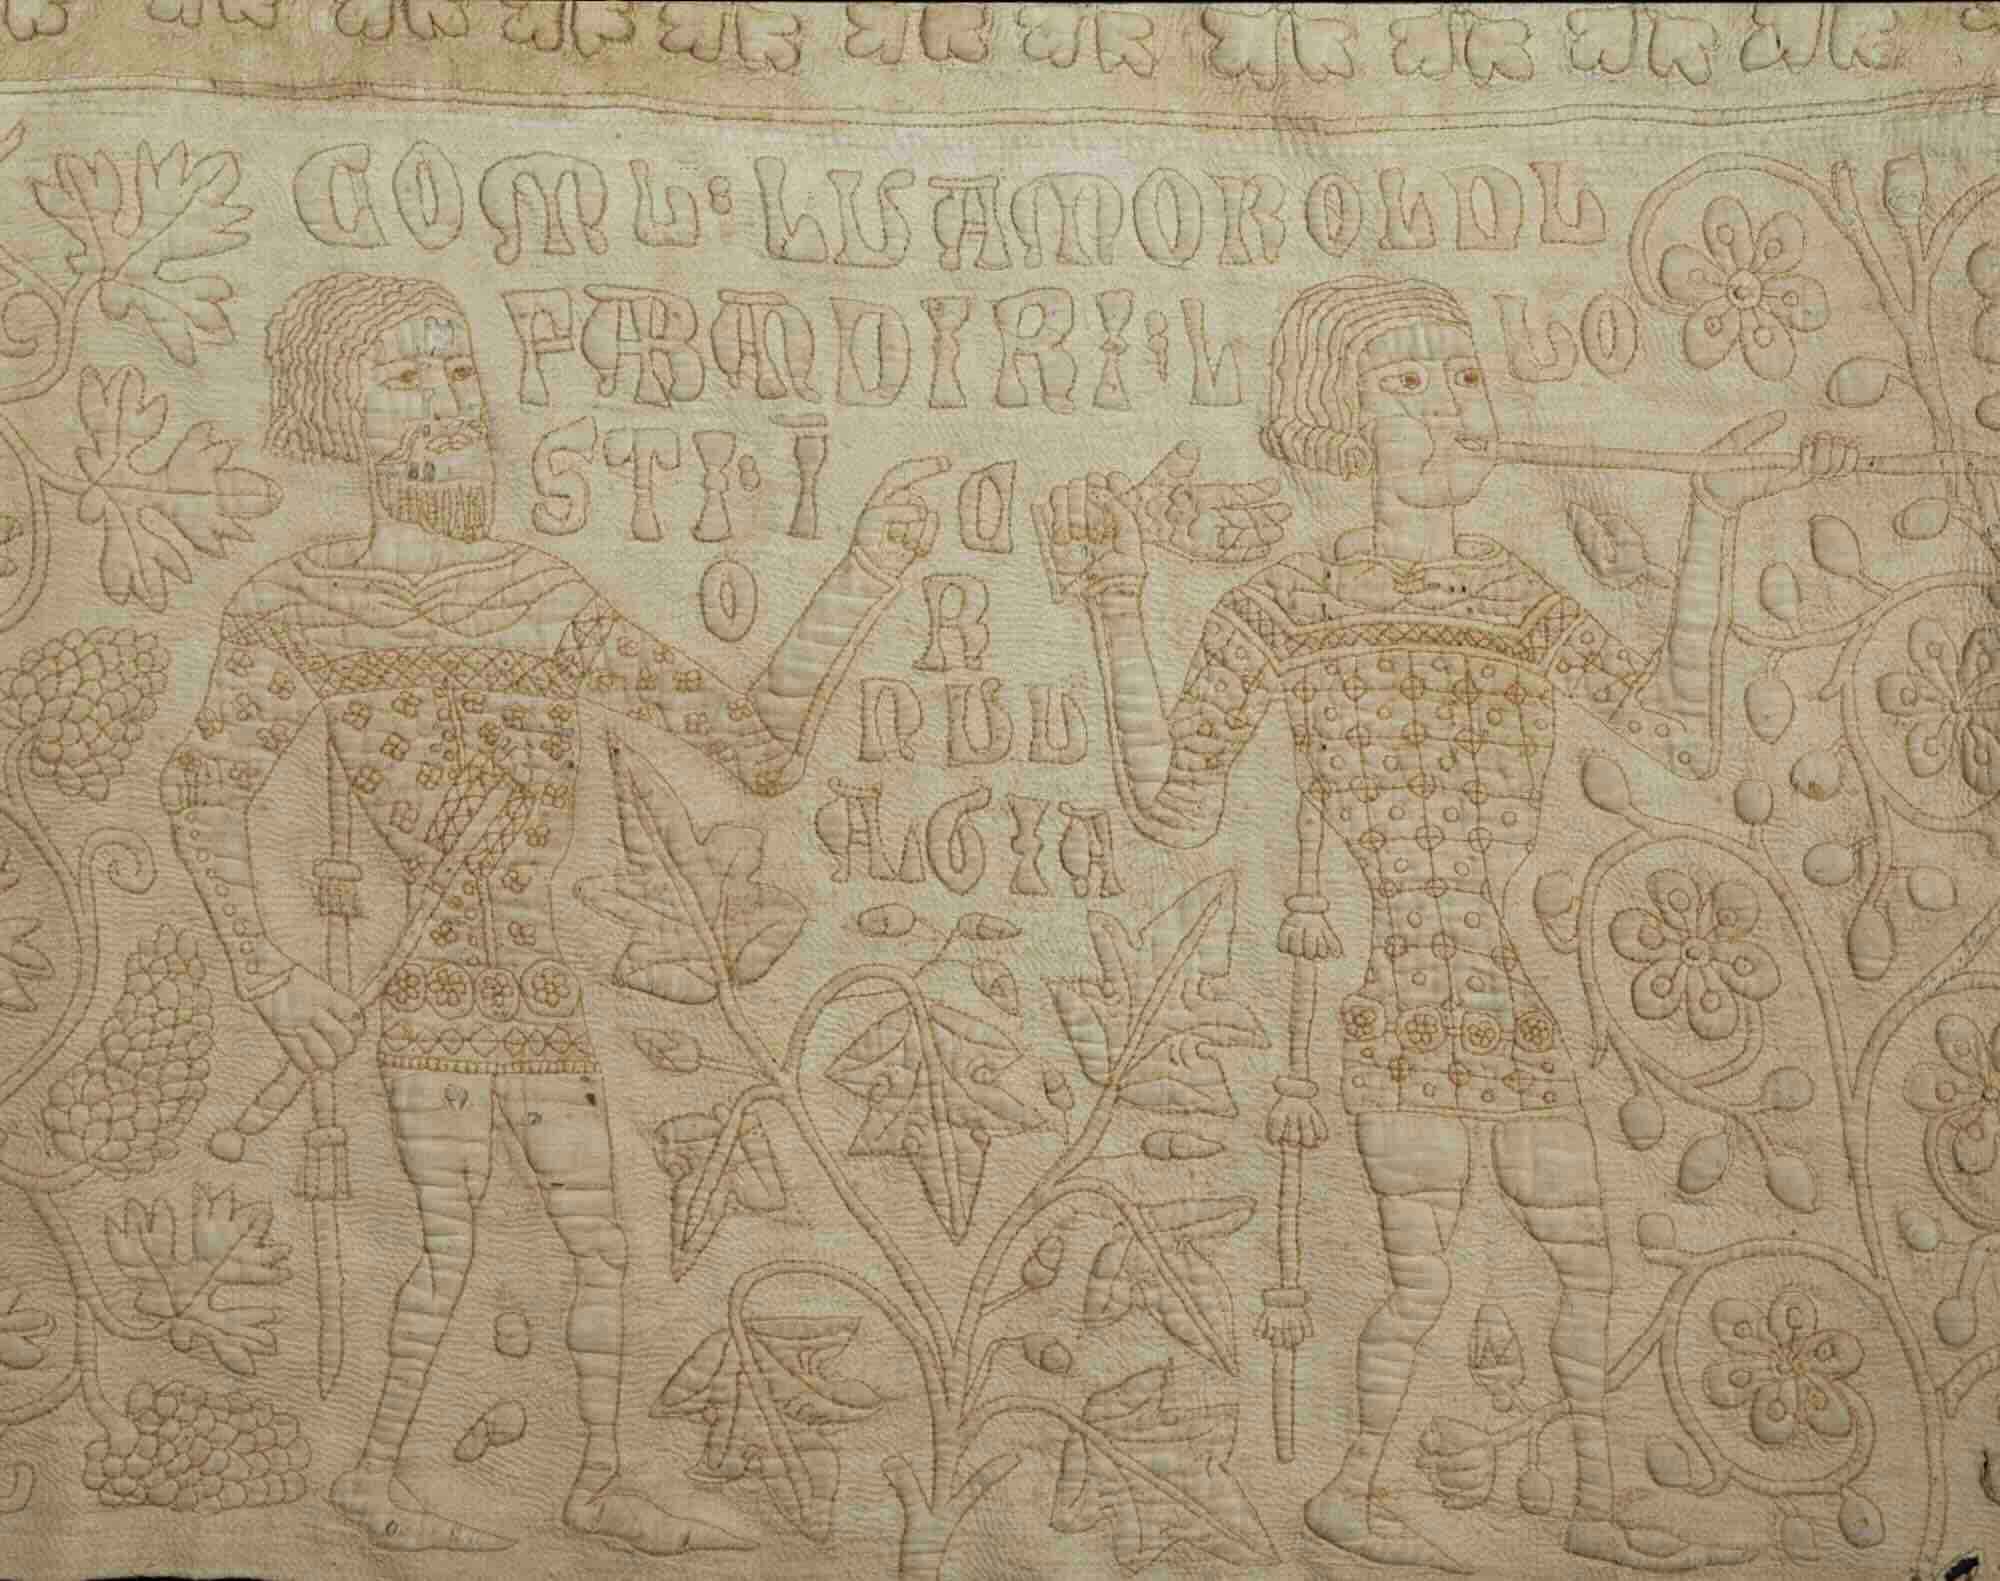 COMU : LU AMOROLDU
FA BANDIRI : L UO
STI : Ī C
O R
NUU
ALGIA